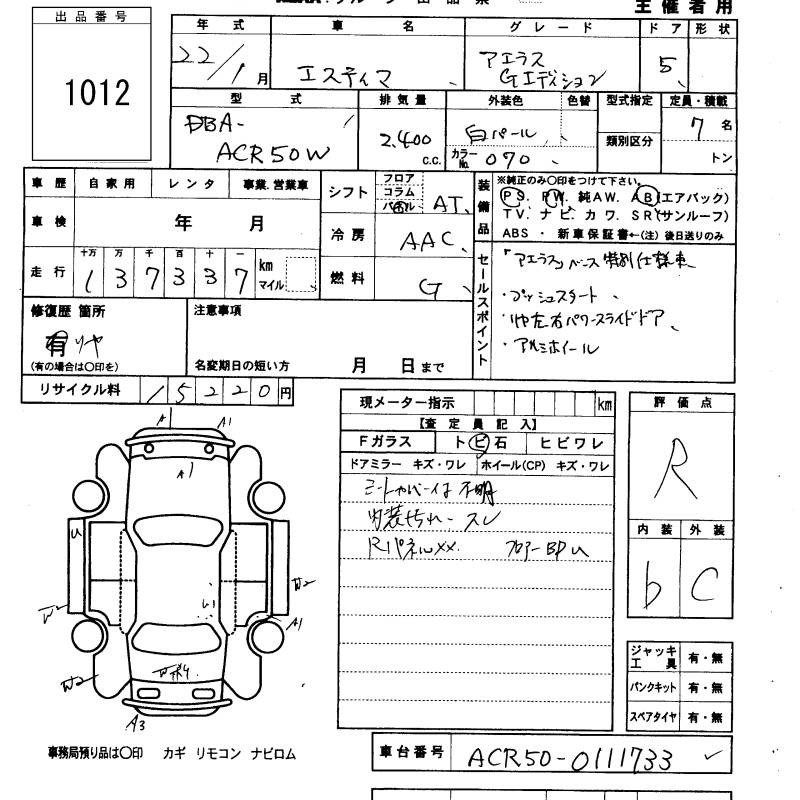 主催者用
出品番号
1012
年式 車名 グレード ドア 形状
22/1月 エスティマ アエラス Gエディション 5
型式 排気量 外装色 色替 型式指定 定員・積載
DBA- ACR50W 2,400 c.c. 白パール 7名
カラーNo. 070 類別区分 トン
車歴 自家用 レンタ 事業.営業車
シフト フロア コラム AT
装備品 ※純正のみ○印をつけて下さい。
PS. PW. 純AW. AB(エアバック)
TV. ナビ. カワ. SR(サンルーフ)
ABS ・ 新車保証書←(注) 後日送りのみ
車検 年 月
冷房 AAC
走行 十万 万 千 百 十 一
137337 km マイル
燃料 G
セールスポイント
「アエラス」ベース特別仕様車
・プッシュスタート
・リヤ左右パワースライドドア
・アルミホイール
修復歴 箇所
有 リヤ
(有の場合は○印を)
注意事項
名変期日の短い方 月 日まで
リサイクル料 15220円
現メーター指示 km
【査定員記入】
Fガラス トビ石 ヒビワレ
ドアミラー キズ・ワレ ホイール(CP) キズ・ワレ
シートカバー下不明
内装汚れ スレ
RパネルXX. フロアーBP U
評価点
R
内装 外装
b C
A A1
A1
U
W2
U1
A1
W2
A3
ジャッキ工具 有・無
パンクキット 有・無
スペアタイヤ 有・無
事務局預り品は○印 カギ リモコン ナビロム
車台番号 ACR50-0111733